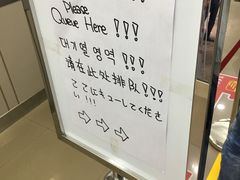 Please
Queue Here !!!
대기열 영역 !!!
请在此处排队!!!
ここにキューしてくださ
い !!!
⇨ ⇨ ⇨